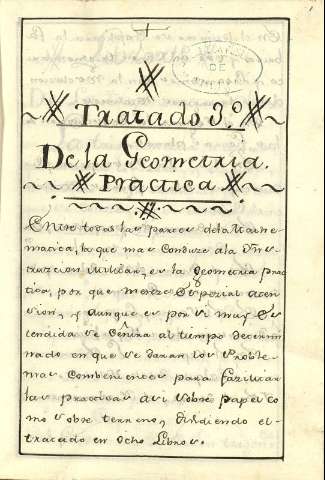 Tratado 3.º
De la Geometria.
Practica
Entre todas las partes dela Mathe-
matica, la que mas Conduze ala Yns-
truzcion Militar, es la Geometria prac
tica, por que mereze Espezial aten-
sion, y Aunque es por si muy Es-
tendida se Ceñira al tiempo determi
nado en que se daran los Proble-
mas Combenientes para fazilitar
las practicas asi sobre papel co
mo sobre terreno, Dividiendo el
tratado en Ocho Libros.
DE